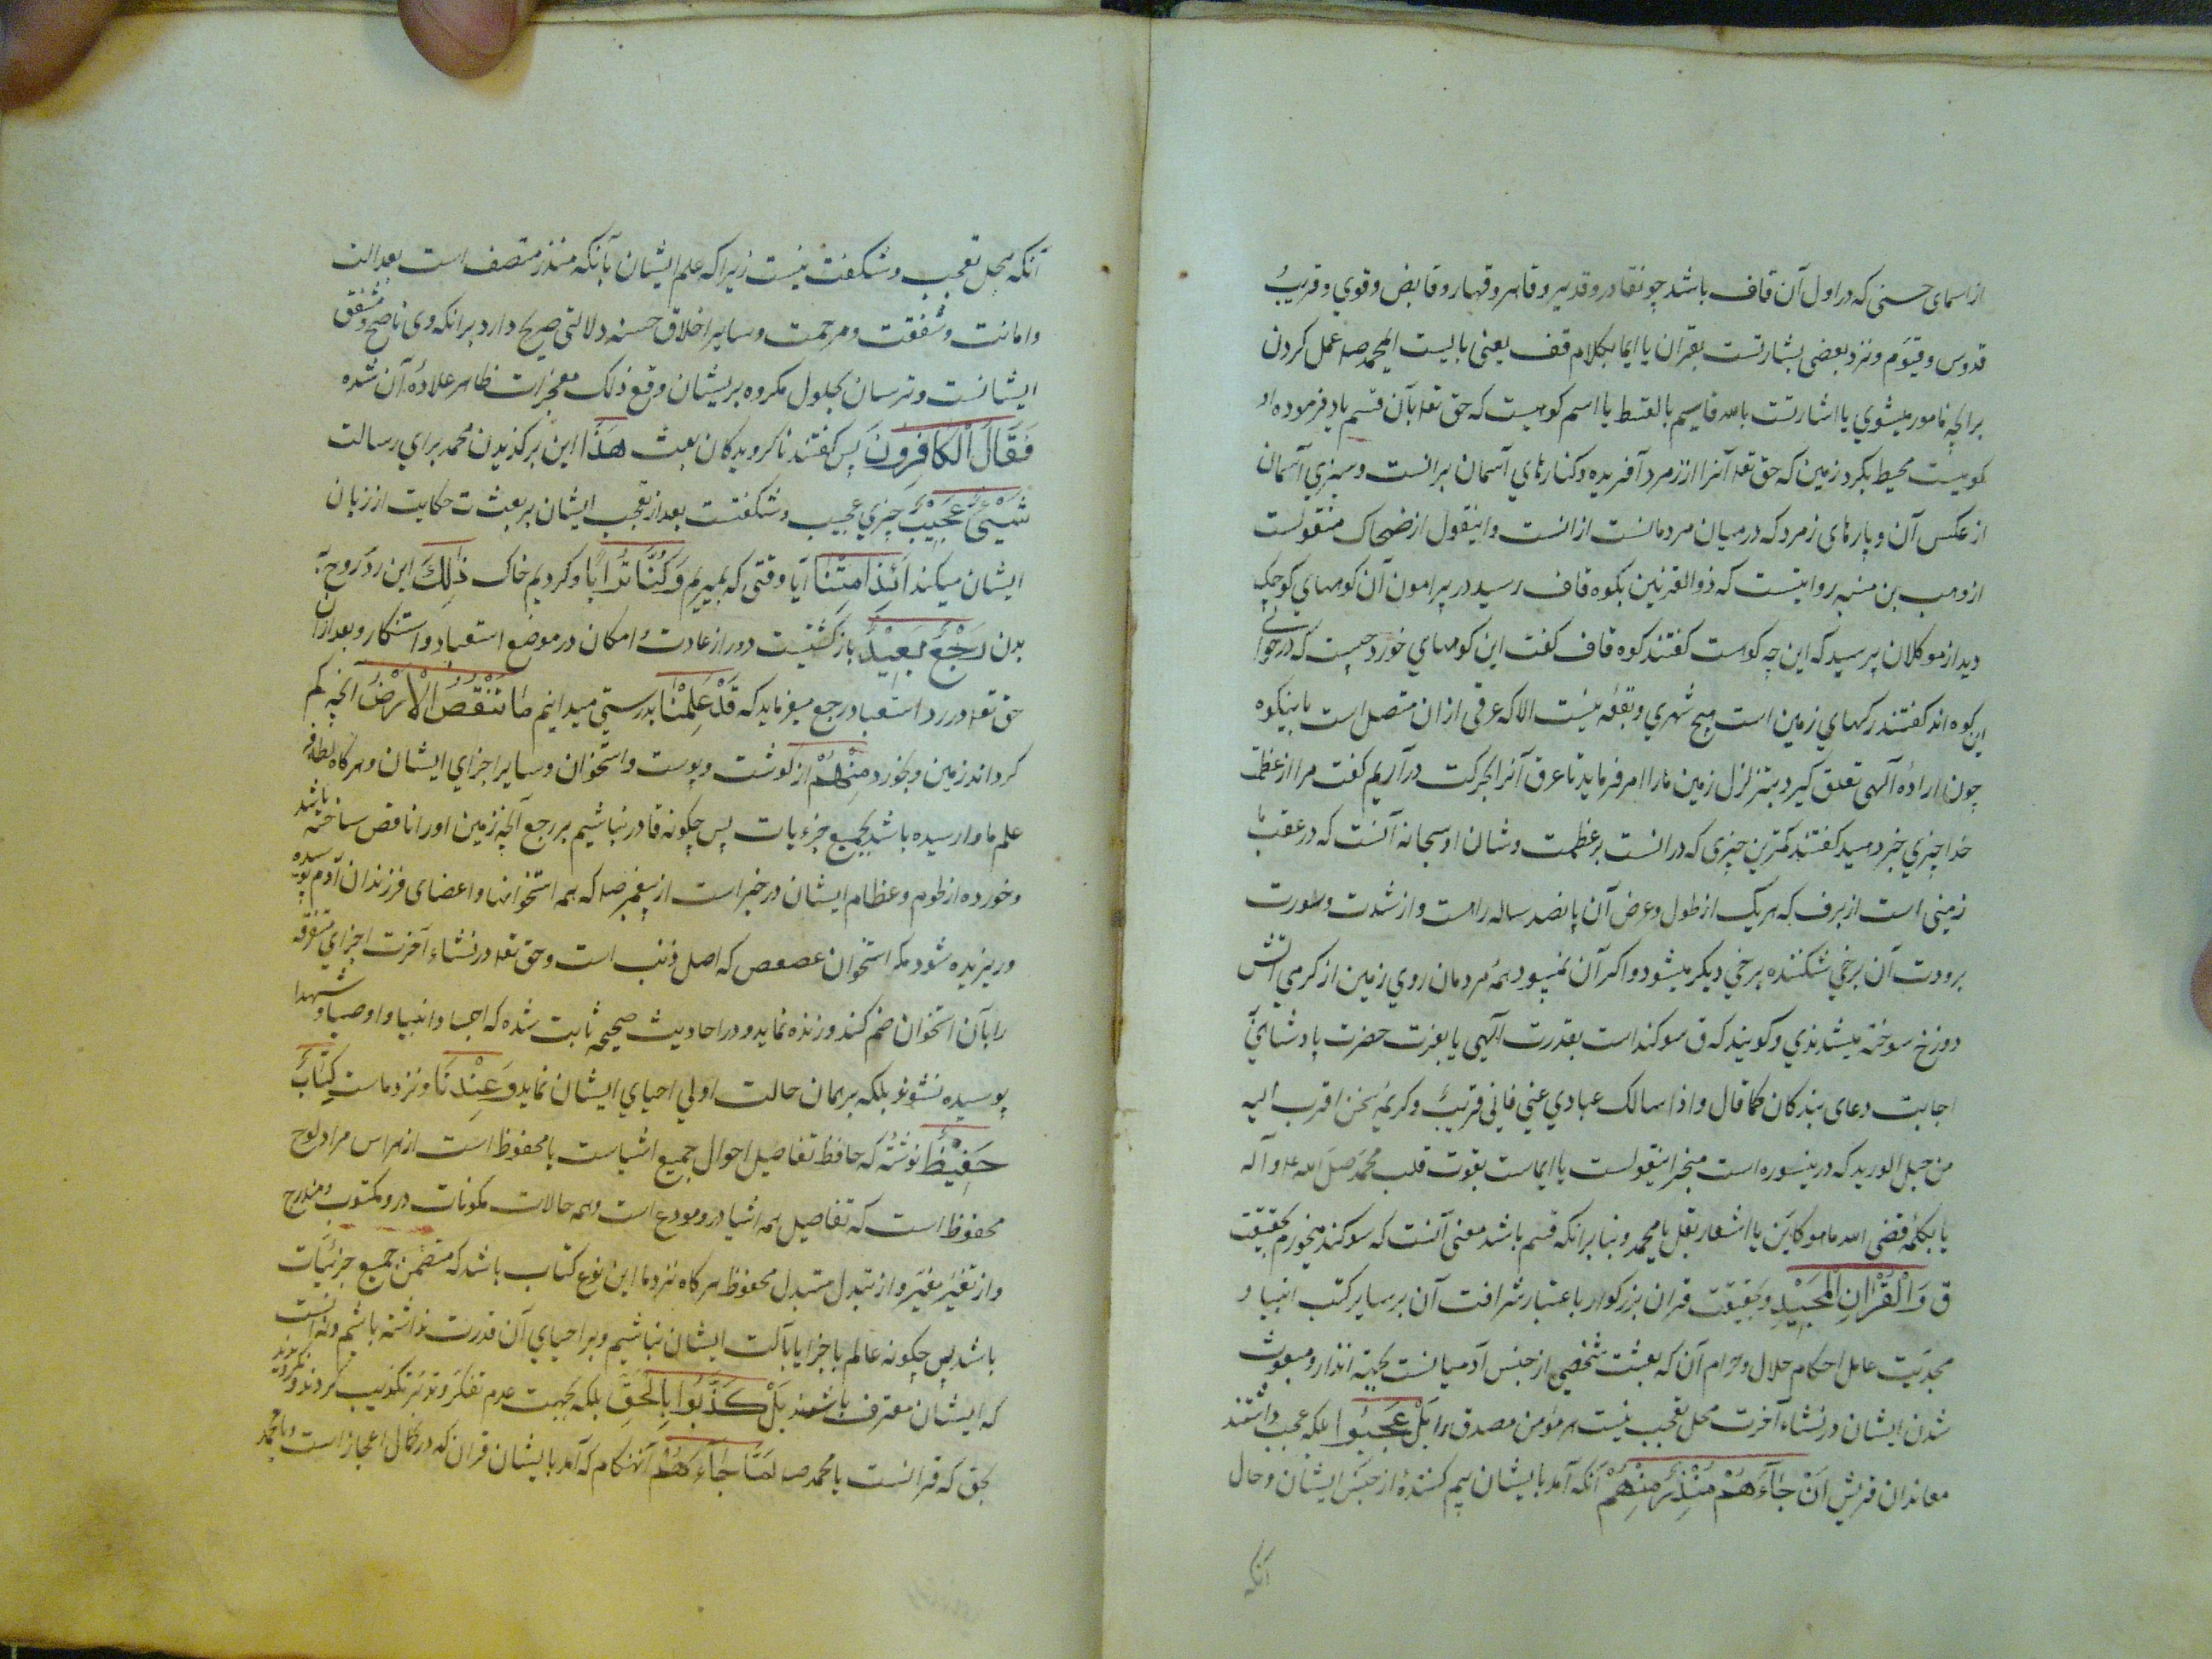 از اسمای حسنی که در اول آن قاف باشد چون قادر و قدیر و قاهر و قهار و قابض و قوی و قریب
قدوس و قیوم و نزد بعضی بشارتست بقران یا ایما بکلام قف یعنی بایست ای محمد صلعم عمل کردن
برانچه مامور میشوی یا اشارتست بالله قاسم بالقسط یا اسم کوهیست که حق تعه بآن قسم یاد فرموده او
کوهیست محیط بکرد زمین که حق تعه آنرا از زمرد آفریده و کنارهای آسمان برانست و سبزی آسمان
از عکس آن و پارهای زمرد که در میان مردمانست ازانست و اینقول از ضحاک منقولست
از وهب بن منبه روایتست که ذوالقرنین بکوه قاف رسید در پیرامون آن کوههای کوچک
دید از موکلان پرسید که این چه کوهست کفتند کوه قاف کفت این کوههای خورد چیست که در حوالی
این کوه اند کفتند رکهای زمین است هیچ شهری و بقعه نیست الا که عرقی ازان متصل است باینکوه
چون اراده آلهی تعلق کیرد بتزلزل زمین مارا امر فرماید تا عرق آنرا بحرکت در آریم کفت مرا از عظمت
خدا چیزی خبر دهید کفتند کمترین چیزی که دانست بر عظمت و شان او سبحانه آنست که در عقب ما
زمینی است از برف که هریک از طول و عرض آن پانصد ساله راهست و از شدت و سورت
برودت آن برخی شکننده برخی دیکر میشود و اکر آن نمیبود همه مردمان روی زمین از کرمی آتش
دوزخ سوخته میشدندی و کویند که ق سوکند است بقدرت آلهی یا بعزت حضرت پادشاهی
اجابت دعای بندکان کما قال و اذا سالک عبادی عنی فانی قریب و کریمه نحن اقرب الیه
من حبل الورید که درینسوره است مخبر اینقولست یا ایماست بقوت قلب محمد صلی الله علیه و آله
یا بکلمه قضی الله ما هو کاین یا اشعار بقل یا محمد و بنا برانکه قسم باشد معنی آنست که سوکند میخورم بحقیقت
ق وَالْقُرْانِ الْمَجِيْدِ و بحقیقت قران بزرکوار باعتبار شرافت آن بر سایر کتب انبیا و
مجدیت عامل احکام حلال و حرام آن که بعثت شخصی از جنس آدمیانست بجهة انذار و مبعوث
شدن ایشان در نشاء آخرت محل تعجب نیست هر مؤمن مصدق را بَلْ عَجِبُوا بلکه عجب داشتند
معاندان قریش اَنْ جَآءَهُمْ مُنْذِرٌ مِنْهُمْ آنکه آمد بایشان بیم کننده از جنس ایشان و حال
آنکه
آنکه محل تعجب و شکفت نیست زیرا که علم ایشان بآنکه منذر متصف است بعدالت
و امانت و شفقت و مرحمت و سایر اخلاق حسنه دلالتی صریح دارد برانکه وی ناصح و مشفق
ایشانست و ترسان بحلول مکروه بریشان و مع ذلک معجزات ظاهر علاوه آن شده
فَقَالَ الْكَافِرُونَ پس کفتند ناکرویدکان ببعث هَذَا این برکزیدن محمد برای رسالت
شَيْئٌ عَجِيْبٌ چیزی عجیب و شکفتست بعد از تعجب ایشان بر بعثت حکایت از زبان
ایشان میکند اَئِذَا مِتْنَا آیا وقتی که بمیریم وَكُنَّا تُرَابًا و کردیم خاک ذٰلِكَ این رد روح به
بدن رَجْعٌ بَعِيْدٌ بازکشتیست دور از عادت و امکان در موضع استبعاد و استنکار و بعد ازان
حق تعه در رد استبعاد رجع میفرماید که قَدْ عَلِمْنَا بدرستی میدانیم مَا تَنْقُصُ الْاَرْضُ آنچه کم
کرداند زمین و بخورد مِنْهُمْ از کوشت و پوست و استخوان و سایر اجزای ایشان و هرکاه
علم ما وا رسیده باشد بجمیع جزءیات پس چکونه قادر نباشیم بر رجع آنچه زمین اورا ناقص ساخته باشد
و خورده از لحوم و عظام ایشان در خبر است از پیغمبر صلعم که همه استخوانها و اعضای فرزندان آدم پوسیده
و ریزیده شود مکر استخوان عصعص که اصل ذنب است و حق تعه در نشاء آخرت اجزای متفرقه
را بآن استخوان ضم کند و زنده نماید و در احادیث صحیحه ثابت شده که اجساد انبیا و اوصیا و شهدا
پوسیده نشوند بلکه بر همان حالت اولی احیای ایشان نماید وَعِنْدَنَا و نزد ماست كِتَابٌ
حَفِيْظٌ نوشته که حافظ تفاصیل احوال جمیع اشیاست یا محفوظ است از اندراس مراد لوح
محفوظ است که تفاصیل همه اشیا درو مودع است و همه حالات مکونات درو مکتوب و مندرج
و از تغیر مغیر و از تبدل متبدل محفوظ هرکاه نزد ما این نوع کتاب باشد که متضمن جمیع جزئیات
باشد پس چکونه عالم باجزا یا بآکت ایشان نباشیم و بر احیای آن قدرت نداشته باشیم و نه آنست
که ایشان معترف باشند بَلْ كَذَّبُوا بِالْحَقِّ بلکه بجهت عدم تفکر و تدبر تکذیب کردند و نکرویدند
بحق که قرانست یا محمد صلعم لَمَّا جَآءَهُمْ آنهنکام که آمد بایشان قران که در کمال اعجاز است و یا محمد